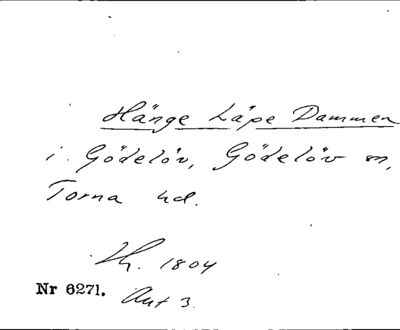 Hänge Läpe Dammen
i. Gödelöv, Gödelöv sn,
Torna hd.
Lh. 1804
Nr 6271. Aut 3.